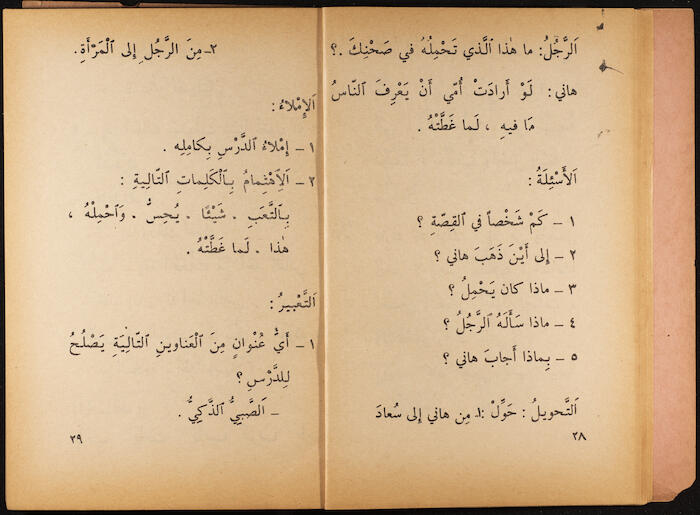 اَلرَّجُلُ: ما هٰذا ٱلَّذي تَحْمِلُهُ في صَحْنِكَ .؟
هاني: لَوْ أَرادَتْ أُمّي أَنْ يَعْرِفَ ٱلنّاسُ
ما فيهِ ، لَما غَطَّتْهُ .
اَلأَسْئِلَةُ :
١ - كَمْ شَخْصاً في ٱلقِصَّةِ ؟
٢ - إِلى أَيْنَ ذَهَبَ هاني ؟
٣ - ماذا كان يَحْمِلُ ؟
٤ - ماذا سَأَلَهُ ٱلرَّجُلُ ؟
٥ - بِماذا أَجابَ هاني ؟
اَلتَّحويلُ : حَوِّلْ :١ـ مِن هاني إِلى سُعادَ
٢٨
٢ـ مِنَ الرَّجُلِ إِلى ٱلْمَرْأَةِ.
اَلإِمْلاءُ :
١ - إِمْلاءُ ٱلدَّرْسِ بِكامِلِهِ .
٢ - اَلاِهْتِمامُ بِٱلْكَلِماتِ ٱلتّالِيَةِ :
بِٱلتَّعَبِ . شَيْئًا . يُحِسُّ . وَٱحْمِلْهُ ،
هٰذا . لَما غَطَّتْهُ .
اَلتَّعْبيرُ :
١ - أَيُّ عُنْوانٍ مِنَ ٱلْعَناوينِ ٱلتّالِيَةِ يَصْلُحُ
لِلدَّرْسِ ؟
- اَلصَّبِيُّ ٱلذَّكِيُّ .
٢٩